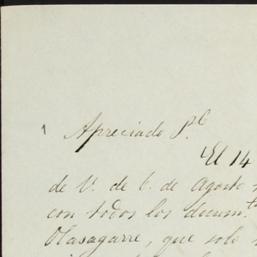 1
Apreciado P.e
El 14
de V. de 6. de Agosto
con todos los docum.tos
Olasagarre, que solo